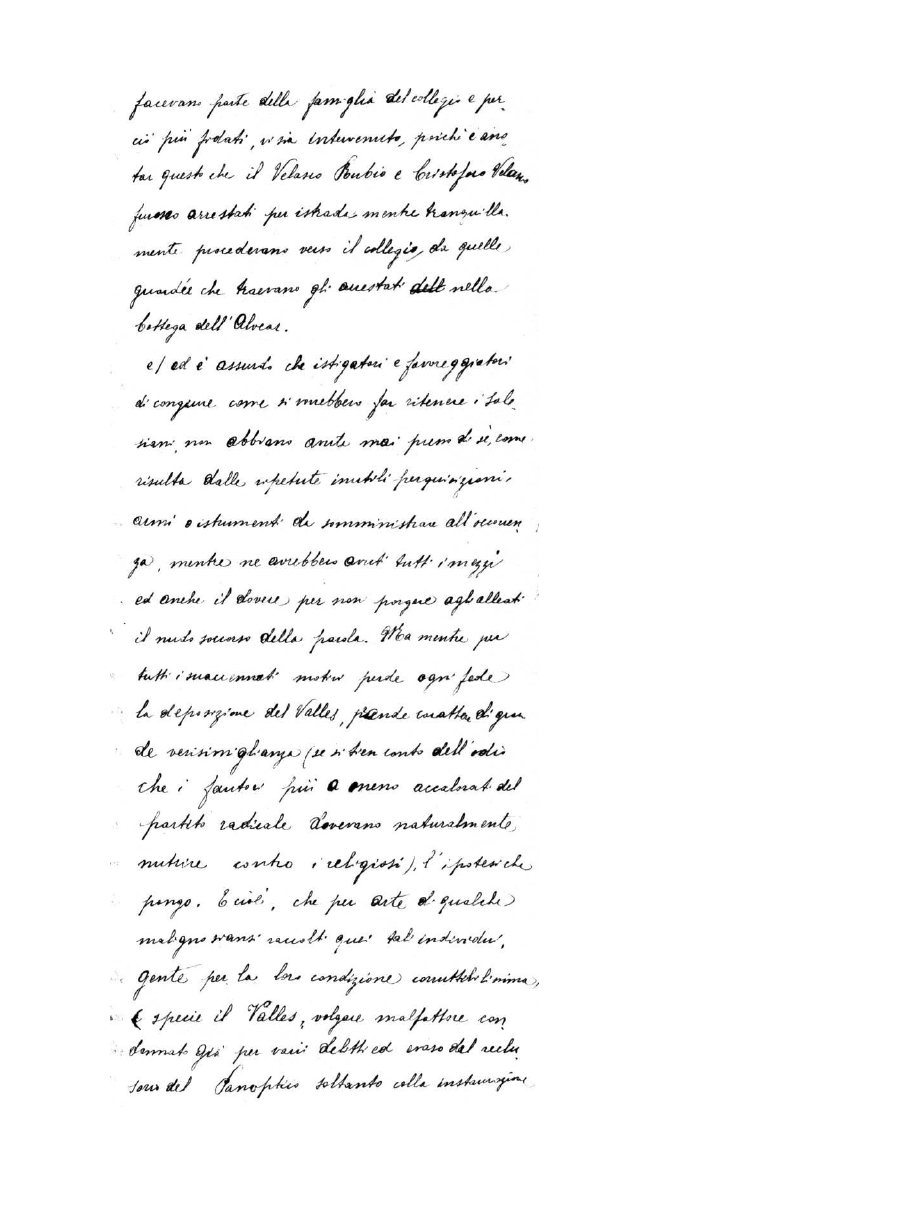 facevano parte della famiglia del collegio e per
ciò più fidati, vi sia intervenuto, poichè è ano
tar questo che il Velasco Rubio e Cristoforo Velasco
furono arrestati per istrada mentre tranquilla.
mente procedevano verso il collegio, da quelle
guardie che traevano gli arrestati dell nella
bottega dell'Alvear.
e/ ed è assurdo che istigatori e favoreggiatori
di congiure come si vorrebbero far ritenere i Sale
siani, non abbiano avute mai presso di sè, come
risulta dalle ripetute inutili perquisizioni,
armi o istrumenti da somministrare all'occorren
za, mentre ne avrebbero avuti tutti i mezzi
ed anche il dovere per non porgere agli alleati
il nudo soccorso della parola. Ma mentre per
tutti i suaccennati motivi perde ogni fede
la deposizione del Valles, prende carattere di gran
de verisimiglianza (se si tien conto dell'odio
che i fautori più o meno accalorati del
partito radicale dovevano naturalmente
nutrire contro i religiosi), l'ipotesi che
pongo. E cioè, che per arte di qualche
maligno siansi raccolti quei tali individui,
gente per la loro condizione corruttibilissima,
e specie il Valles, volgare malfattore con
dannato già per varii delitti ed evaso dal reclu
sorio del Panoptico soltanto colla instaurazione